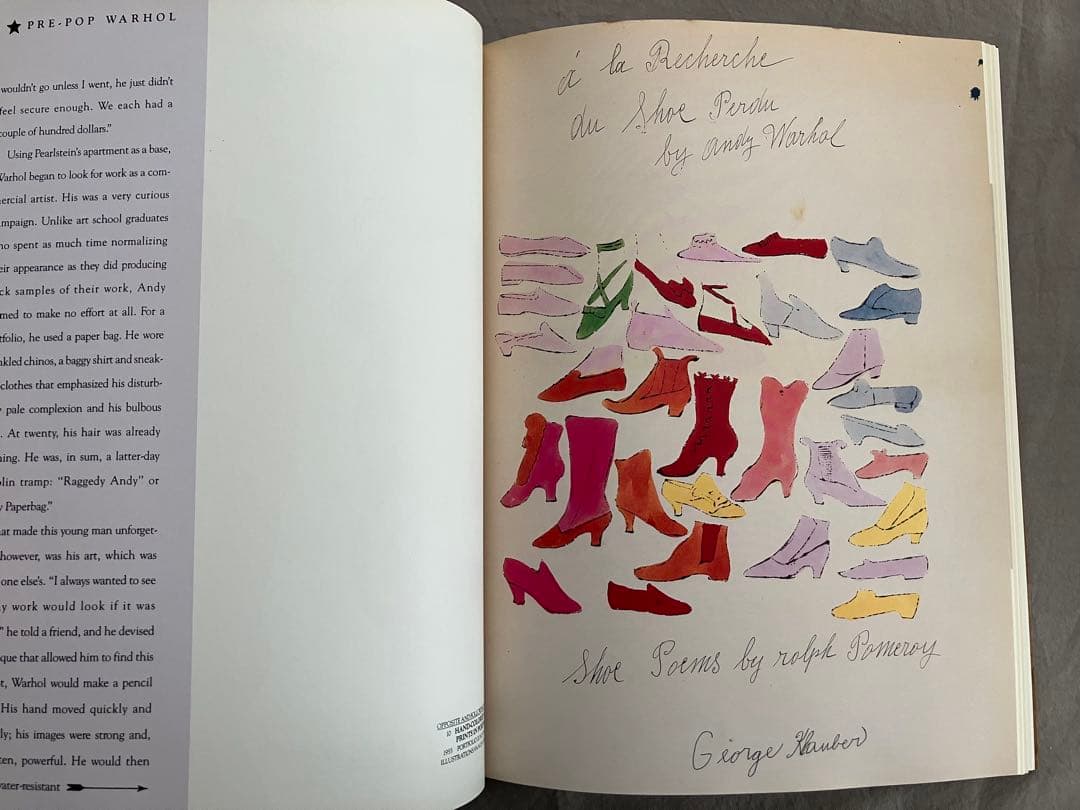 PRE-POP WARHOL
wouldn't go unless I went, he just didn't
feel secure enough. We each had a
couple of hundred dollars."
Using Pearlstein's apartment as a base,
Warhol began to look for work as a com-
ercial artist. His was a very curious
mpaign. Unlike art school graduates
ho spent as much time normalizing
eir appearance as they did producing
ck samples of their work, Andy
med to make no effort at all. For a
tfolio, he used a paper bag. He wore
nkled chinos, a baggy shirt and sneak-
clothes that emphasized his disturb-
pale complexion and his bulbous
. At twenty, his hair was already
ning. He was, in sum, a latter-day
plin tramp: "Raggedy Andy" or
y Paperbag."
hat made this young man unforget-
however, was his art, which was
one else's. "I always wanted to see
y work would look if it was
" he told a friend, and he devised
que that allowed him to find this
t, Warhol would make a pencil
His hand moved quickly and
ly; his images were strong and,
ten, powerful. He would then
water-resistant
OPPOSITE AND
10 HAND-COLORE
PRINTS IN
1955 PORTFOLIO
ILLUSTRATIONS
á la Recherche
du Shoe Perdu
by Andy Warhol
Shoe Poems by ralph Pomeroy
George Klauber